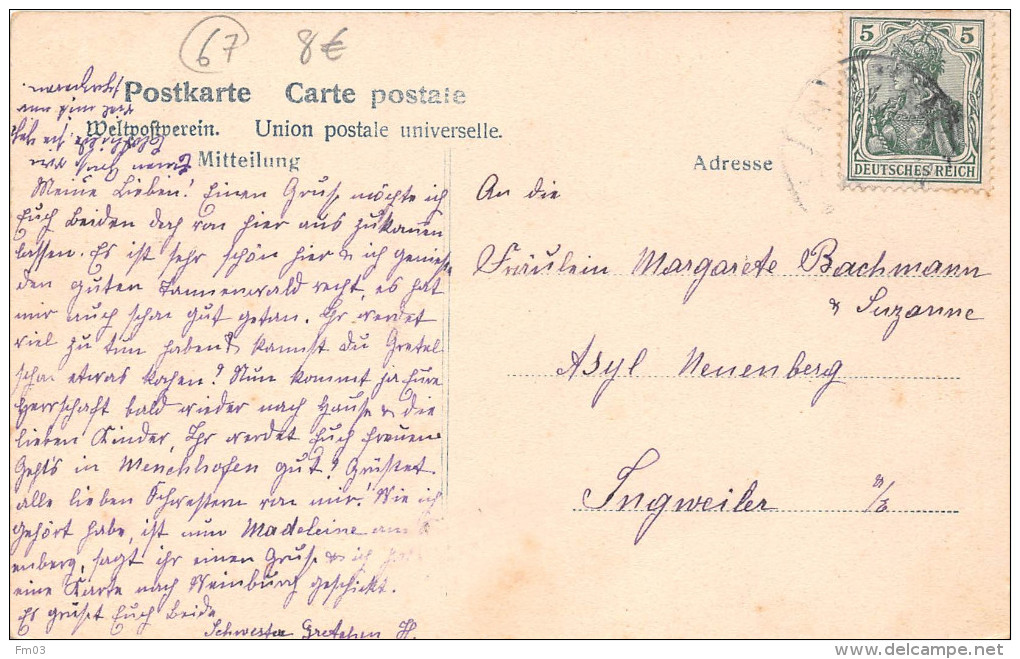 67
8€
5 5
DEUTSCHES REICH
Postkarte Carte postale
Weltpostverein. Union postale universelle.
Mitteilung
Adresse
Meine Lieben! Einen Gruß möchte ich
Euch Beiden doch von hier aus zukommen
lassen. Es ist sehr schön hier & ich genieße
den guten Tannenwald recht, es hat
mir auch schon gut getan. Ihr werdet
viel zu tun haben & kannst du Gretel
schon etwas kochen? Nun kommt ja Eure
Herrschaft bald wieder nach Hause & die
lieben Kinder, Ihr werdet Euch freuen
Geht's in Menchhofen gut? Grüßet
alle lieben Schwestern von mir! Wie ich
gehört habe, ist nun Madeleine am
enberg, sagt ihr einen Gruß & ich
eine Karte nach Weinburg geschickt.
Es grüßt Euch Beide
Schwester Gretchen H
An die
Fräulein Margarete Bachmann
& Suzanne
Asyl Neuenberg
Ingweiler
Fm03
www.delcampe.net